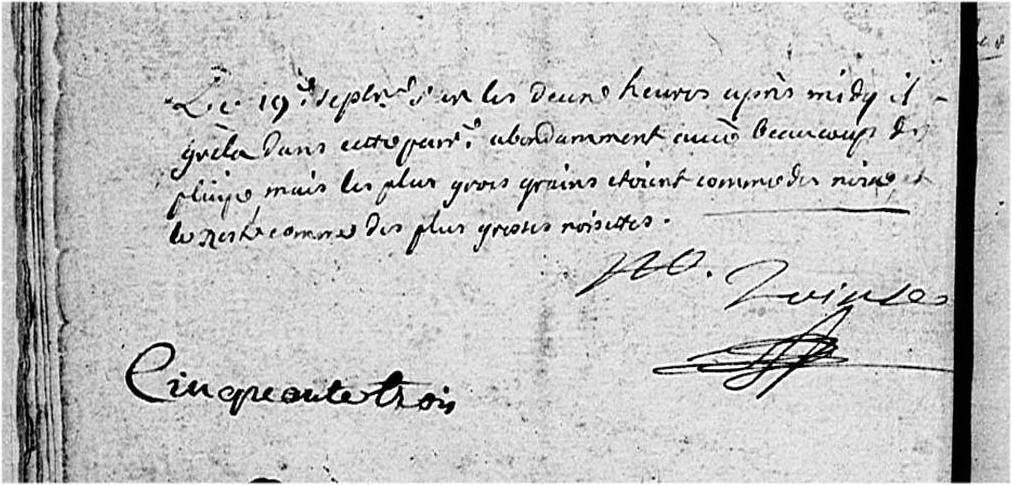 Le 19e. septbre. sur les deux heures après midy il
grêla dans cette parr. abondamment avec beaucoup de
pluye mais les plus gros grains etoient comme des noix et
le reste comme des plus grosses noisettes.
Cinquante trois